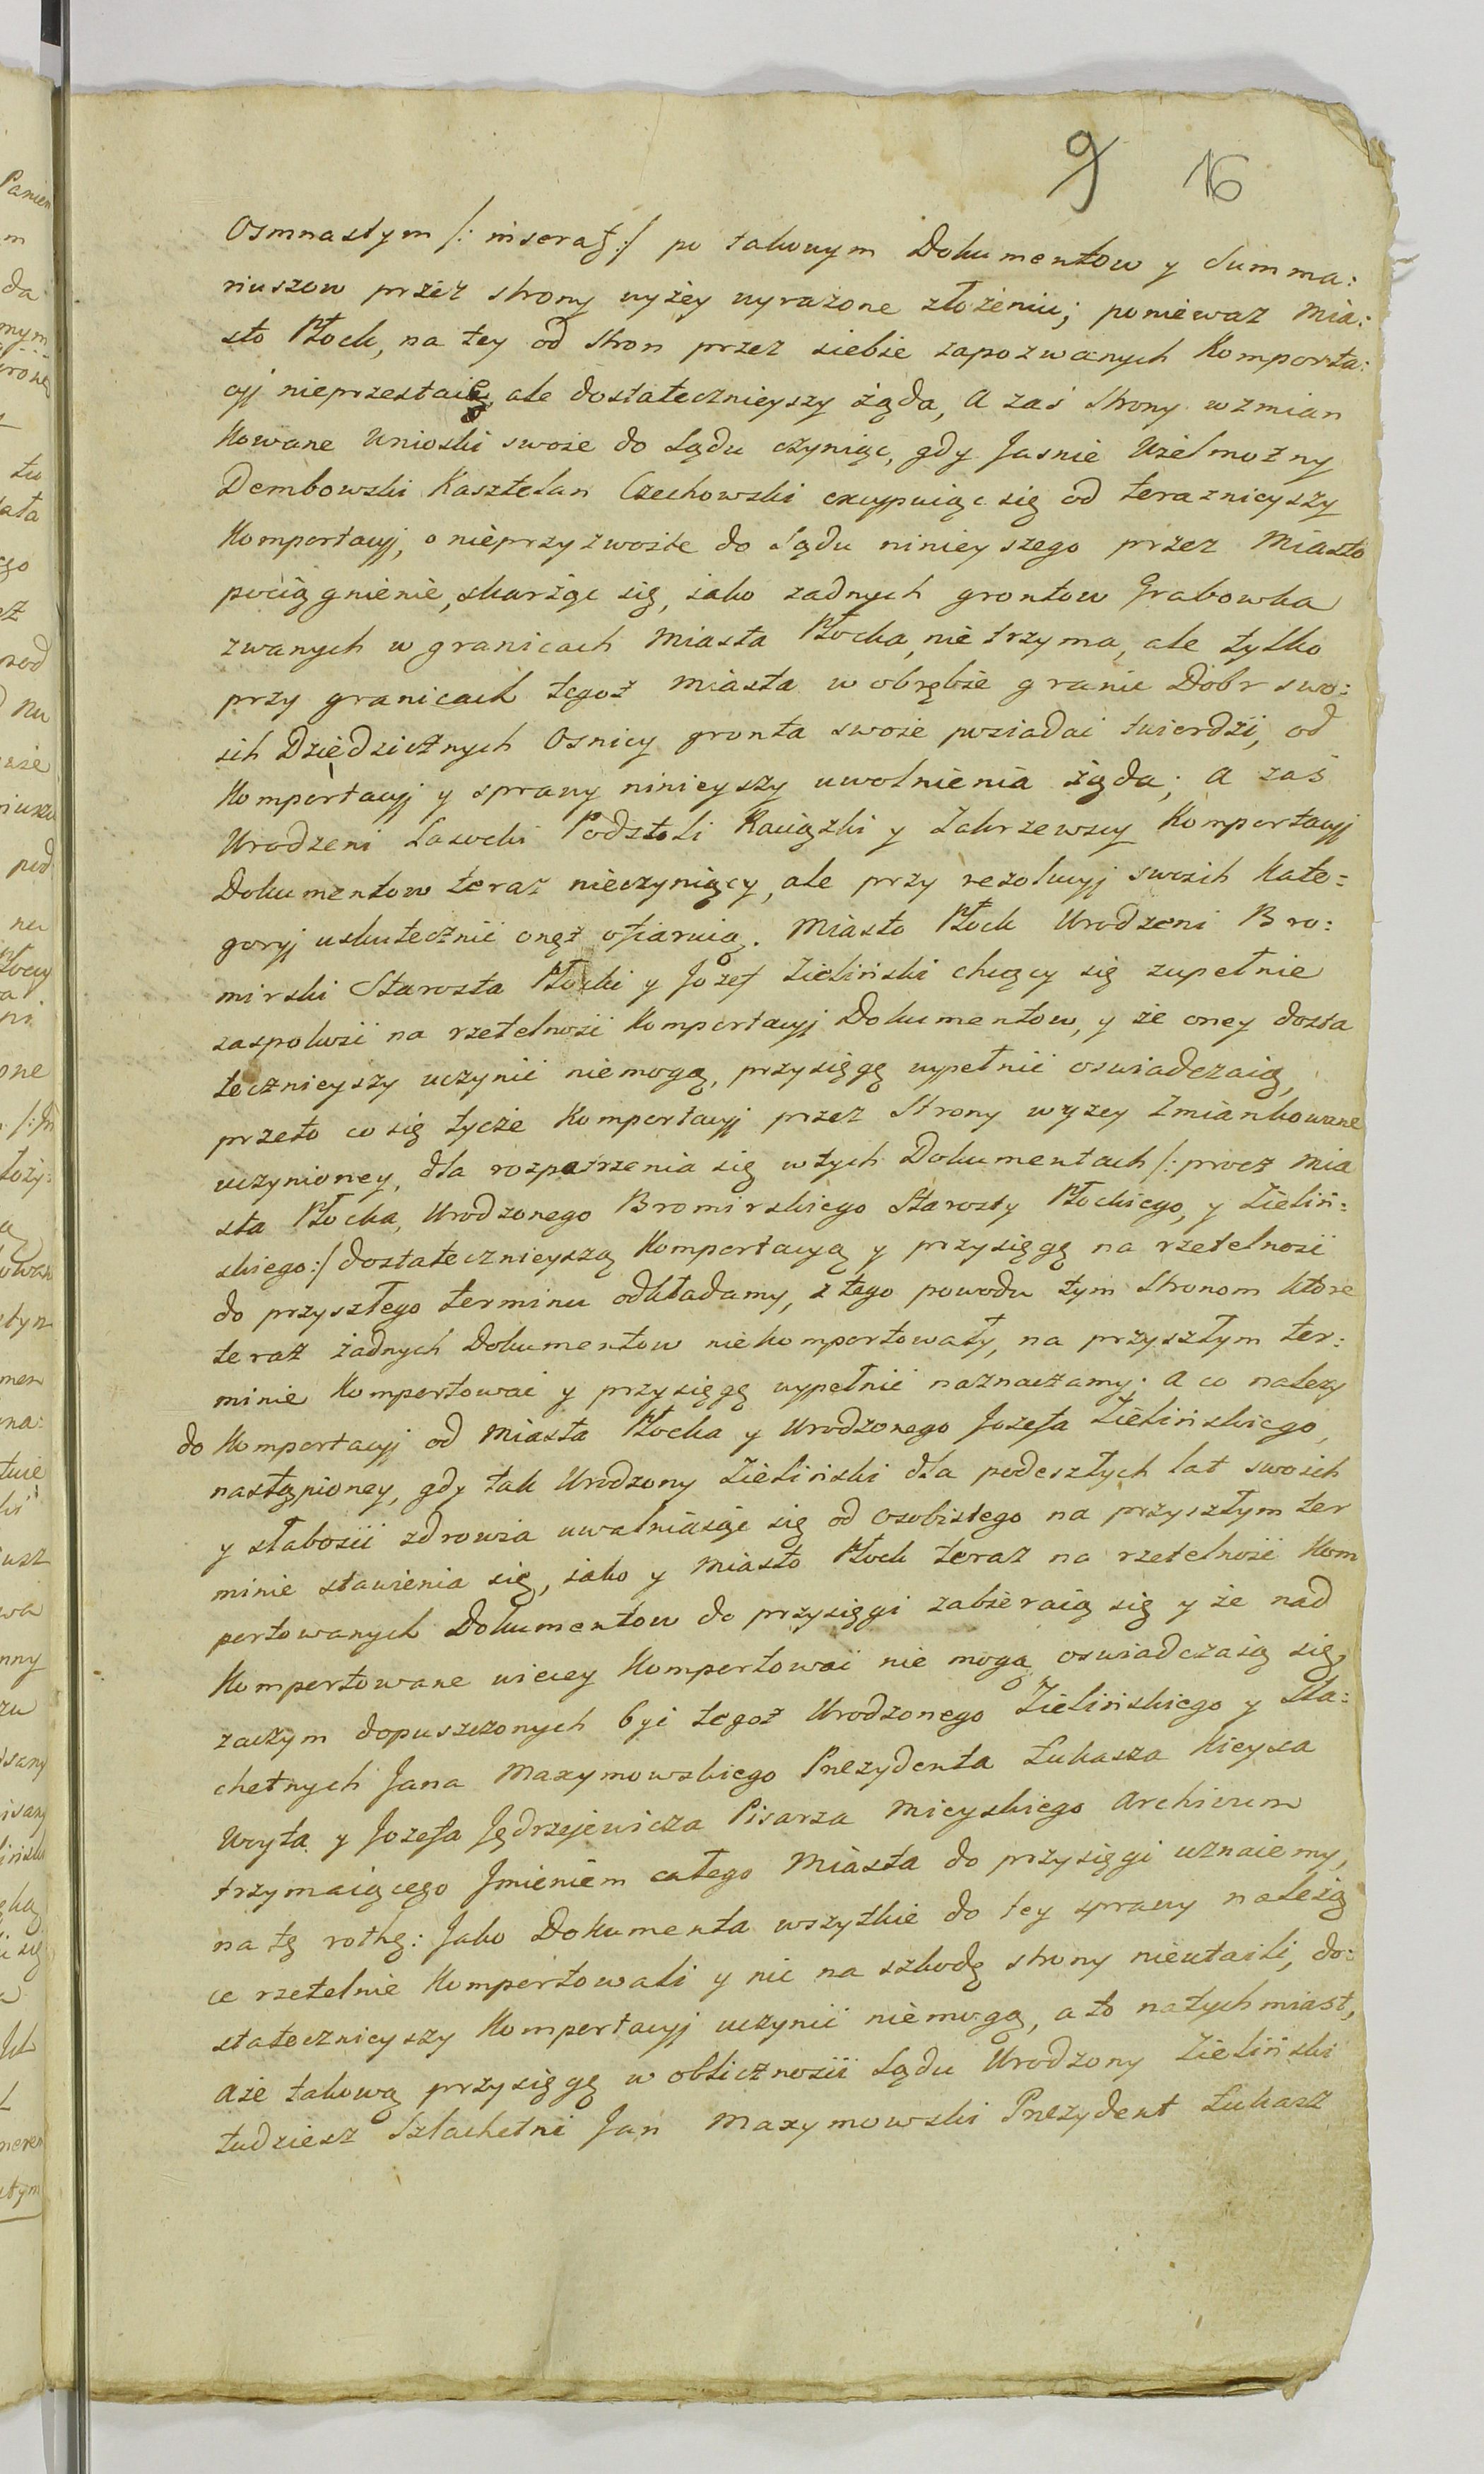 9 16
Osmnastym /: inserat :/ po takowym Dokumentow y Summa:
riuszow przez strony wyżey wyrażone złożeniu; ponieważ Mia:
sto Płock, na tey od stron przez siebie zapozwanych Komporta:
cyj nieprzestaie, ale dostatecznieyszy żąda, A zaś Strony wzmian
kowane Wnioski swoie do Sądu czyniąc, gdy Jasnie Wielmożny
Dembowski Kasztelan Czechowski excypuiąc się od teraznieyszy
Komportacyj, o nieprzyzwoite do Sądu ninieyszego przez Miasto
pociągnienie, skarżąc się, iako żadnych grontow Grabowka
zwanych w granicach Miasta Płocka, nie trzyma, ale tylko
przy granicach tegoż Miasta w obrębie granic Dobr swo:
ich Dziedzicznych Osnicy gronta swoie posiadać twierdzi, od
Komportacyj y sprawy ninieyszy uwolnienia żąda; a zaś
Urodzeni Lasocki Podstoli Raciązki y Zakrzewscy Komportacyj
Dokumentow teraz nieczyniący, ale przy rezolucyj swoich Kate=
goryj uskutecznić onęż ofiaruią. Miasto Płock Urodzeni Bro:
mirski Starosta Płocki y Jozef Zieliński chcący się zupełnie
zaspokoić na rzetelność Komportacyj Dokumentow, y że oney dosta
tecznieyszy uczynić niemogą, przysięgę wypełnić oswiadczaią,
przeto co się tycze Komportacyj przez Strony wyżey zmiankowane
uczynioney, dla rozpatrzenia się w tych Dokumentach /: procz Mia
sta Płocka, Urodzonego Bromirskiego Starosty Płockiego, y Zieliń:
skiego :/ dostatecznieyszą Komportacyą y przysięgę na rzetelność
do przyszłego terminu odkładamy, z tego powodu tym Stronom które
teraz żadnych Dokumentow niekomportowały, na przyszłym ter:
minie Komportować y przysięgę wypełnić naznaczamy; a co należy
do Komportacyj od Miasta Płocka y Urodzonego Jozefa Zielińskiego,
nastąpioney, gdy tak Urodzony Zieliński dla podeszłych lat swoich
y słabości zdrowia uwalniaiąc się od osobistego na przyszłym ter
minie stawienia się, iako y Miasto Płock teraz na rzetelność Kom
portowanych Dokumentow do przysięgi zabieraią się y że nad
Komportowane więcey Komportować nie mogą oswiadczaią się,
zaczym dopuszczonych być tegoż Urodzonego Zielińskiego y Sla:
chetnych Jana Maxymowskiego Prezydenta Łukasza Kieysa
Woyta y Jozefa Jędrzejewicza Pisarza Mieyskiego Archivum
trzymaiącego Jmieniem całego Miasta do przysięgi uznaiemy,
na tę rothę: Jako Dokumenta wszytkie do tey sprawy należą
ce rzetelnie Komportowali y nic na szkodę strony nieutaili, do:
statecznieyszy Komportacyj uczynić niemogą, a to natychmiast,
aże takową przysięgę w obliczności Sądu Urodzony Zieliński
tudziesz Szlachetni Jan Maxymowski Prezydent Łukasz